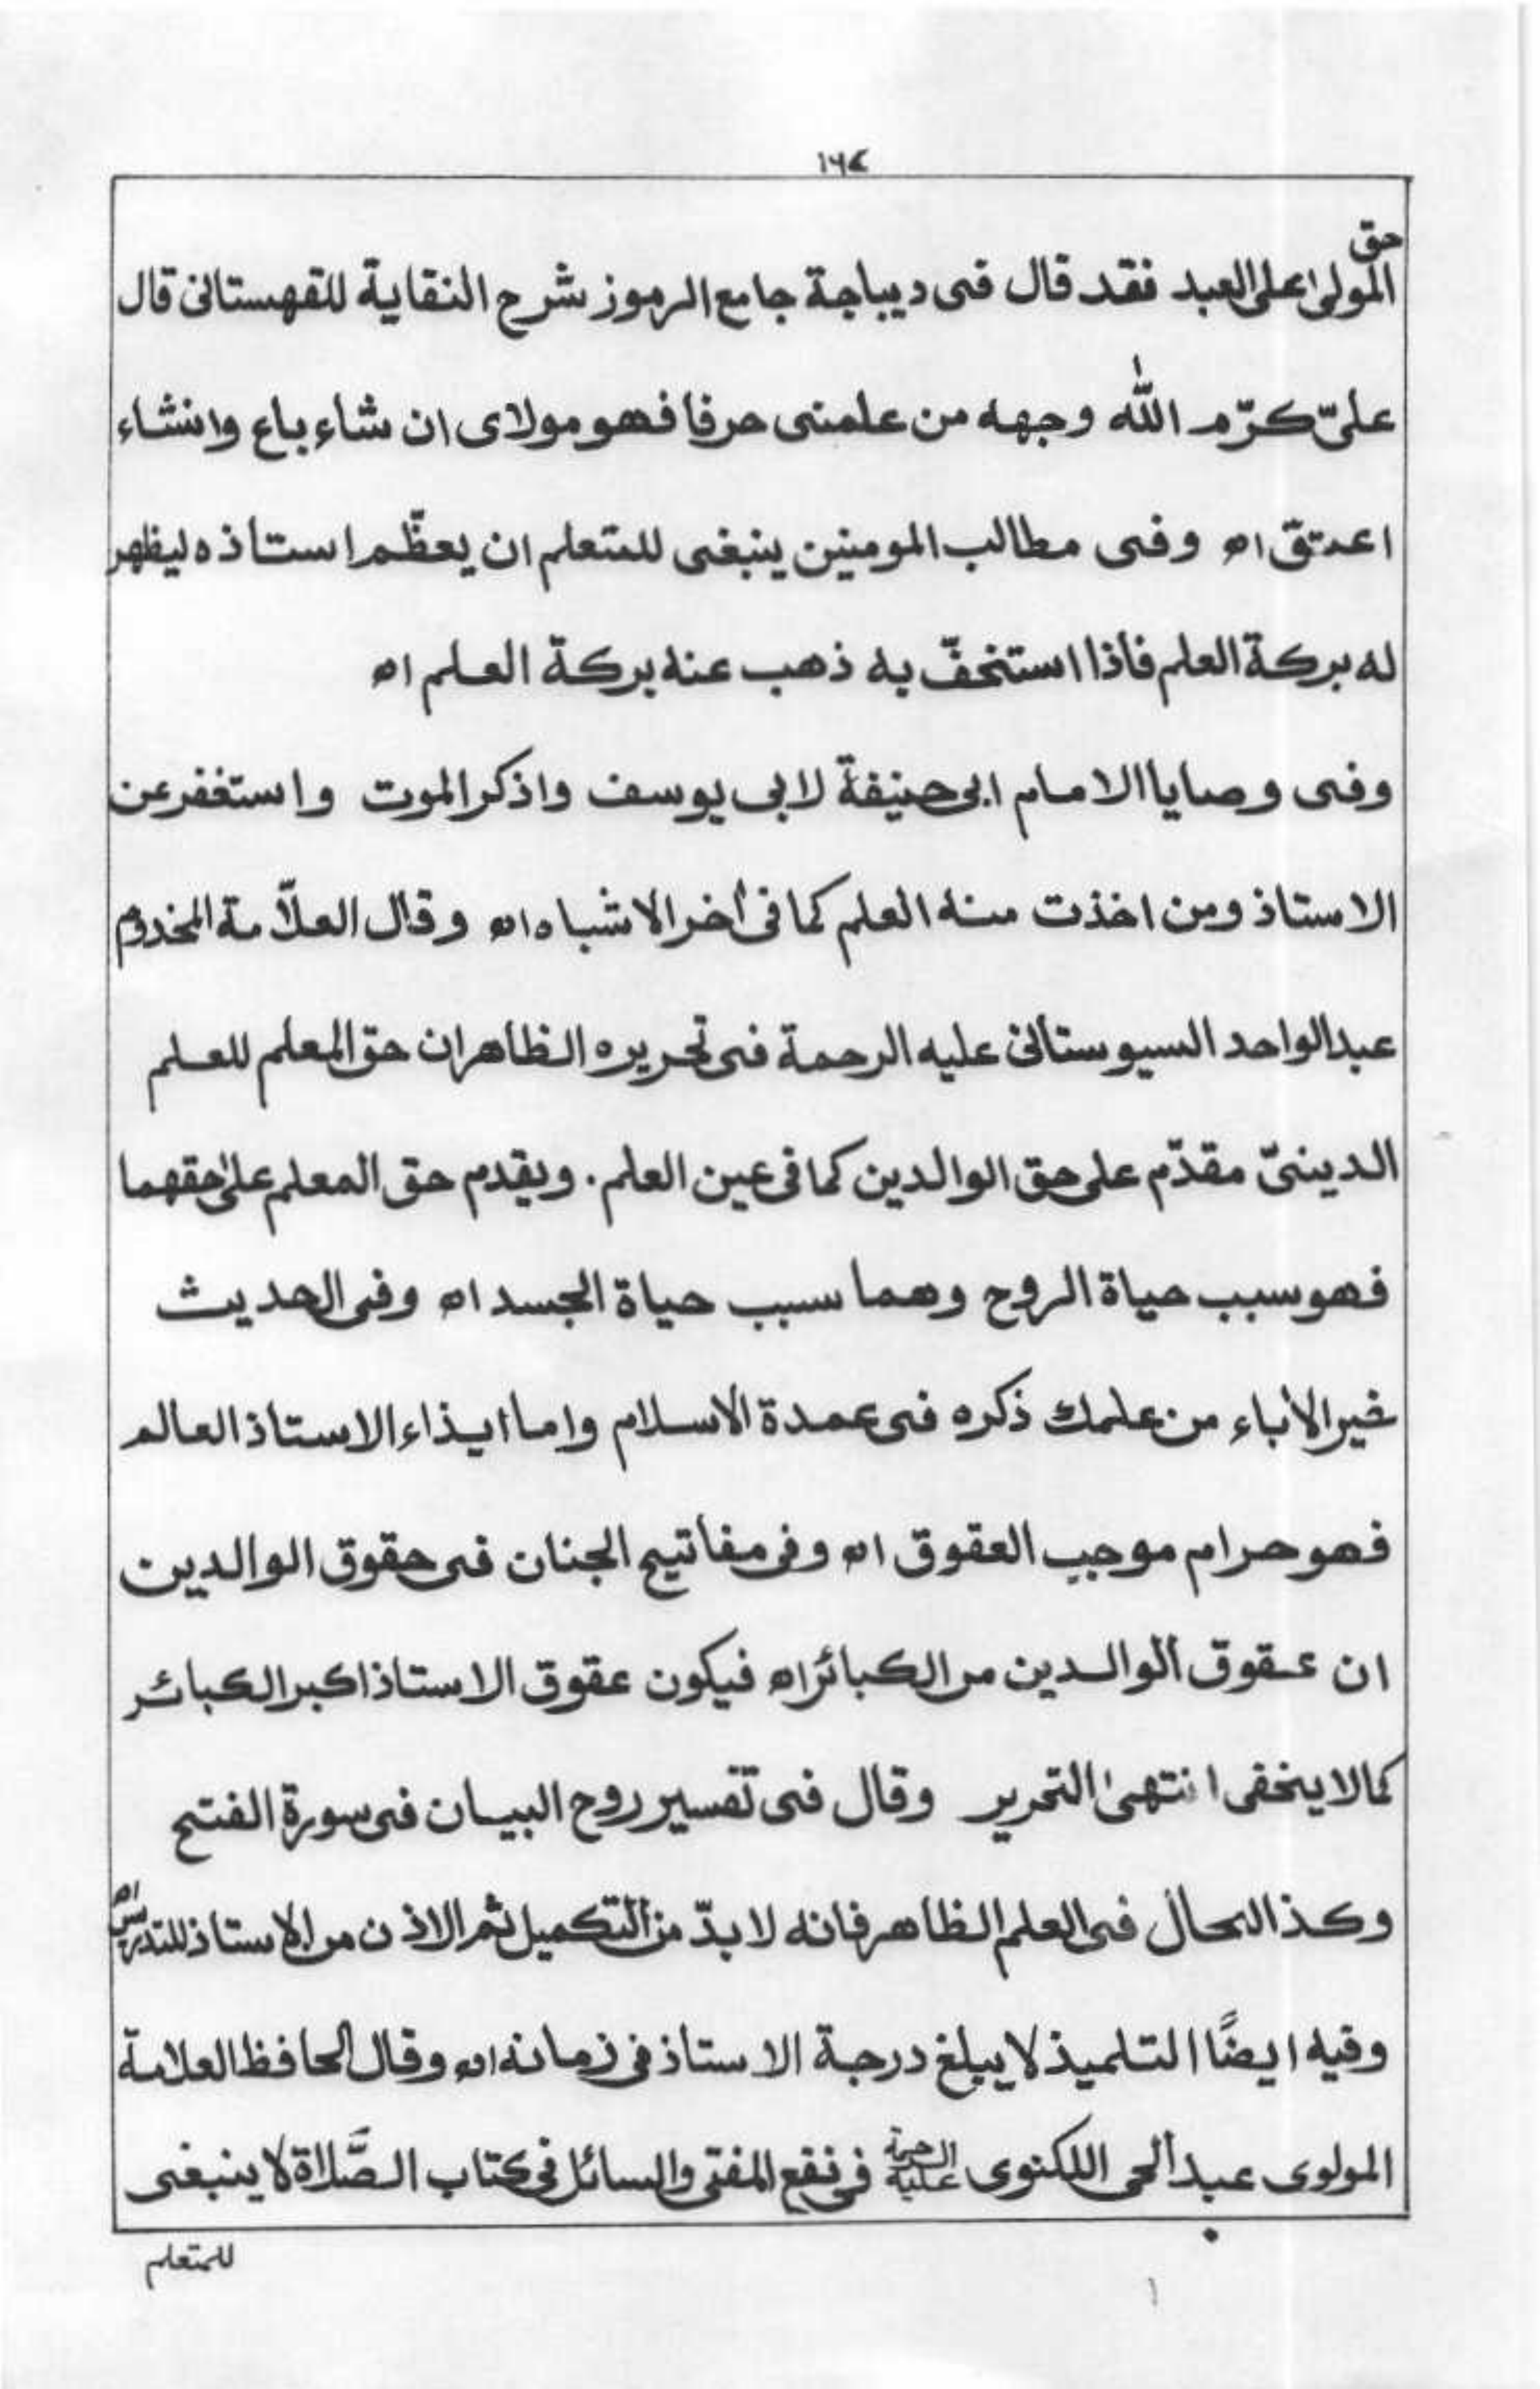 ١٦٤
حق
المولى على العبد فقد قال فى ديباجة جامع الرموز شرح النقاية للقهستانى قال
علىّ كرّم اللّٰه وجهه من علمنى حرفا فهو مولاى ان شاء باع وانشاء
اعتقّ اه وفى مطالب المومنين ينبغى للمتعلم ان يعظّم استاذه ليظهر
له بركة العلم فاذا استخفّ به ذهب عنه بركة العلم اه
وفى وصايا الامام ابى حنيفة لابى يوسف واذكر الموت واستغفر عن
الاستاذ ومن اخذت منه العلم كما فى أخر الاشباه اه وقال العلّامة المخدوم
عبدالواحد السيوستانى عليه الرحمة فى تحريره الظاهر ان حق المعلم للعلم
الدينىّ مقدّم على حق الوالدين كما فى عين العلم. ويقدم حق المعلم على حقهما
فهو سبب حياة الروح وهما سبب حياة الجسد اه وفى الحديث
خير الأباء من علمك ذكره فى عمدة الاسلام واما ايذاء الاستاذ العالم
فهو حرام موجب العقوق اه وفى مفاتيح الجنان فى حقوق الوالدين
ان عقوق الوالدين من الكبائر اه فيكون عقوق الاستاذ اكبر الكبائر
كما لا يخفى انتهىٰ التحرير وقال فى تفسير روح البيان فى سورة الفتح
وكذ الحال فى العلم الظاهر فانه لا بدّ من التكميل ثم الاذن من الاستاذ للتدريس اه
وفيه ايضًا التلميذ لا يبلغ درجة الاستاذ فى زمانه اه وقال الحافظ العلامة
المولوى عبد الحى اللكنوى عليه الرحمة فى نفع المفتى والسائل فى كتاب الصَّلاة لا ينبغى
للمتعلم